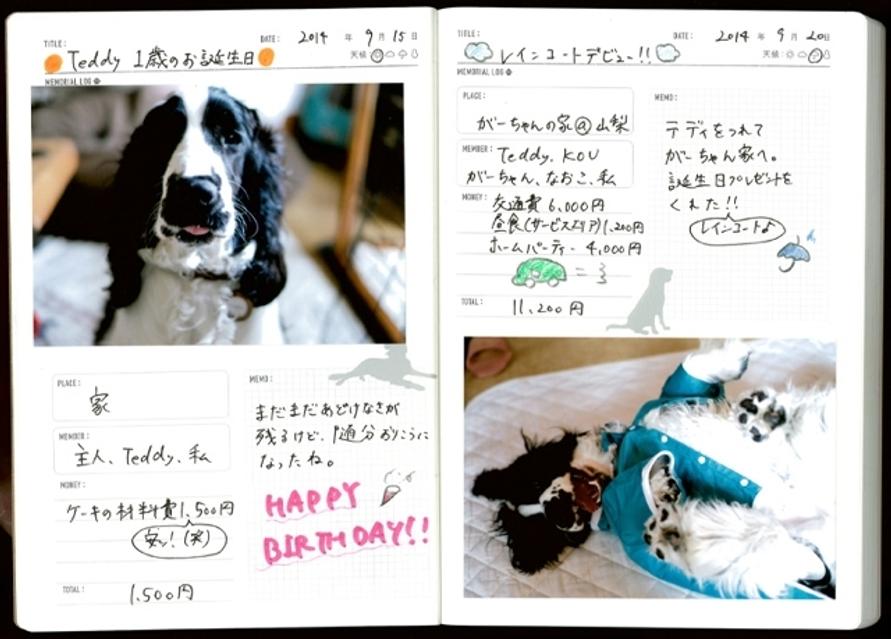 TITLE:
Teddy 1歳のお誕生日
DATE: 2014 年 9 月 15 日
天候:
MEMORIAL LOG
PLACE:
家
MEMBER:
主人、Teddy、私
MONEY:
ケーキの材料費1,500円
安ッ!(笑)
TOTAL:
1,500円
MEMO:
まだまだあどけなさが
残るけど、随分おりこうに
なったね。
HAPPY
BIRTHDAY!!
TITLE:
レインコートデビュー!!
DATE: 2014 年 9 月 20日
天候:
MEMORIAL LOG
PLACE:
がーちゃんの家@山梨
MEMBER:
Teddy、KOU
がーちゃん、なおこ、私
MONEY:
交通費 6,000円
昼食(サービスエリア)1,200円
ホームパーティー 4,000円
TOTAL:
11,200円
MEMO:
テディをつれて
がーちゃん家へ。
誕生日プレゼントを
くれた!!
レインコート♪